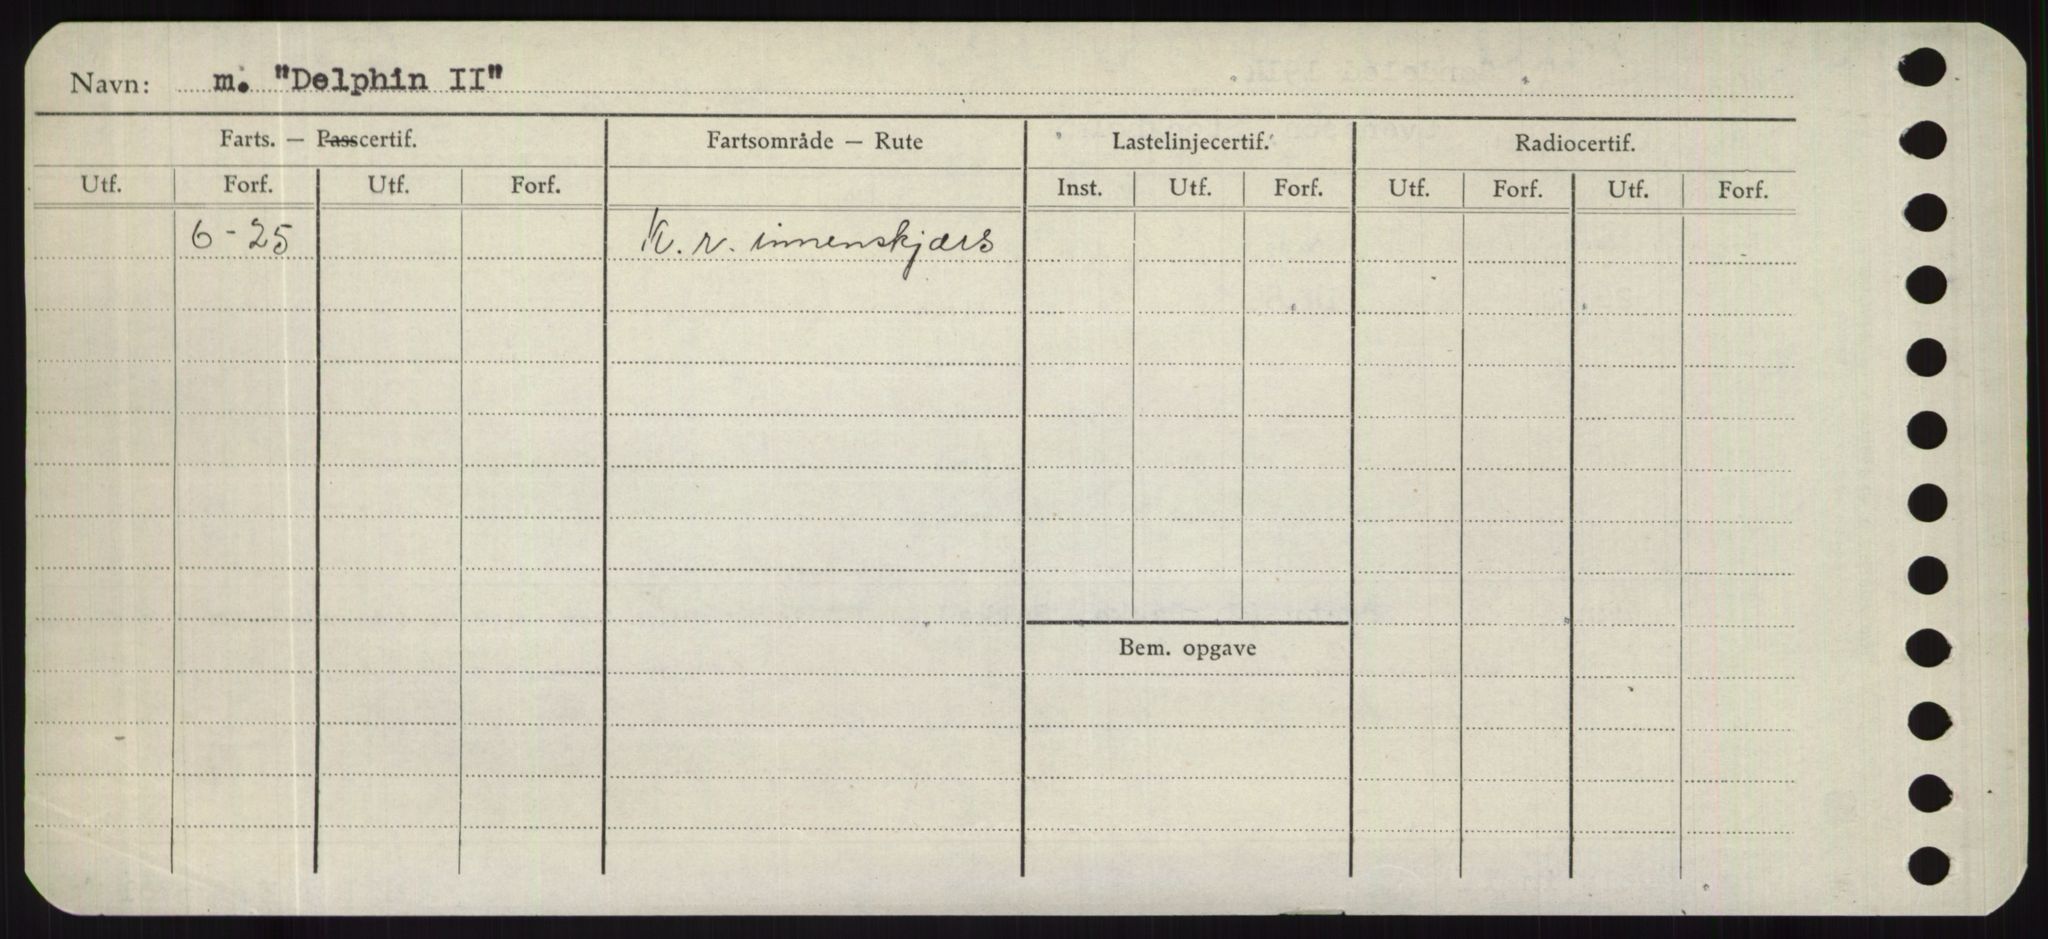 Navn: m. "Delphin II"
Farts. — Passcertif. Fartsområde — Rute Lastelinjecertif. Radiocertif.
Utf. Forf. Utf. Forf. Inst. Utf. Forf. Utf. Forf. Utf. Forf.
6-25 K. r. innenskjærs
Bem. opgave